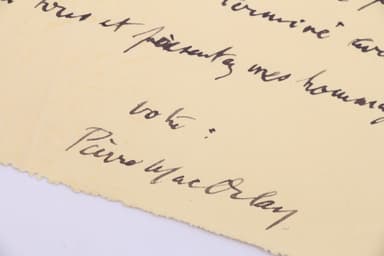 terminé
vous et présentez mes hommag
votre :
Pierre Mac Orlan